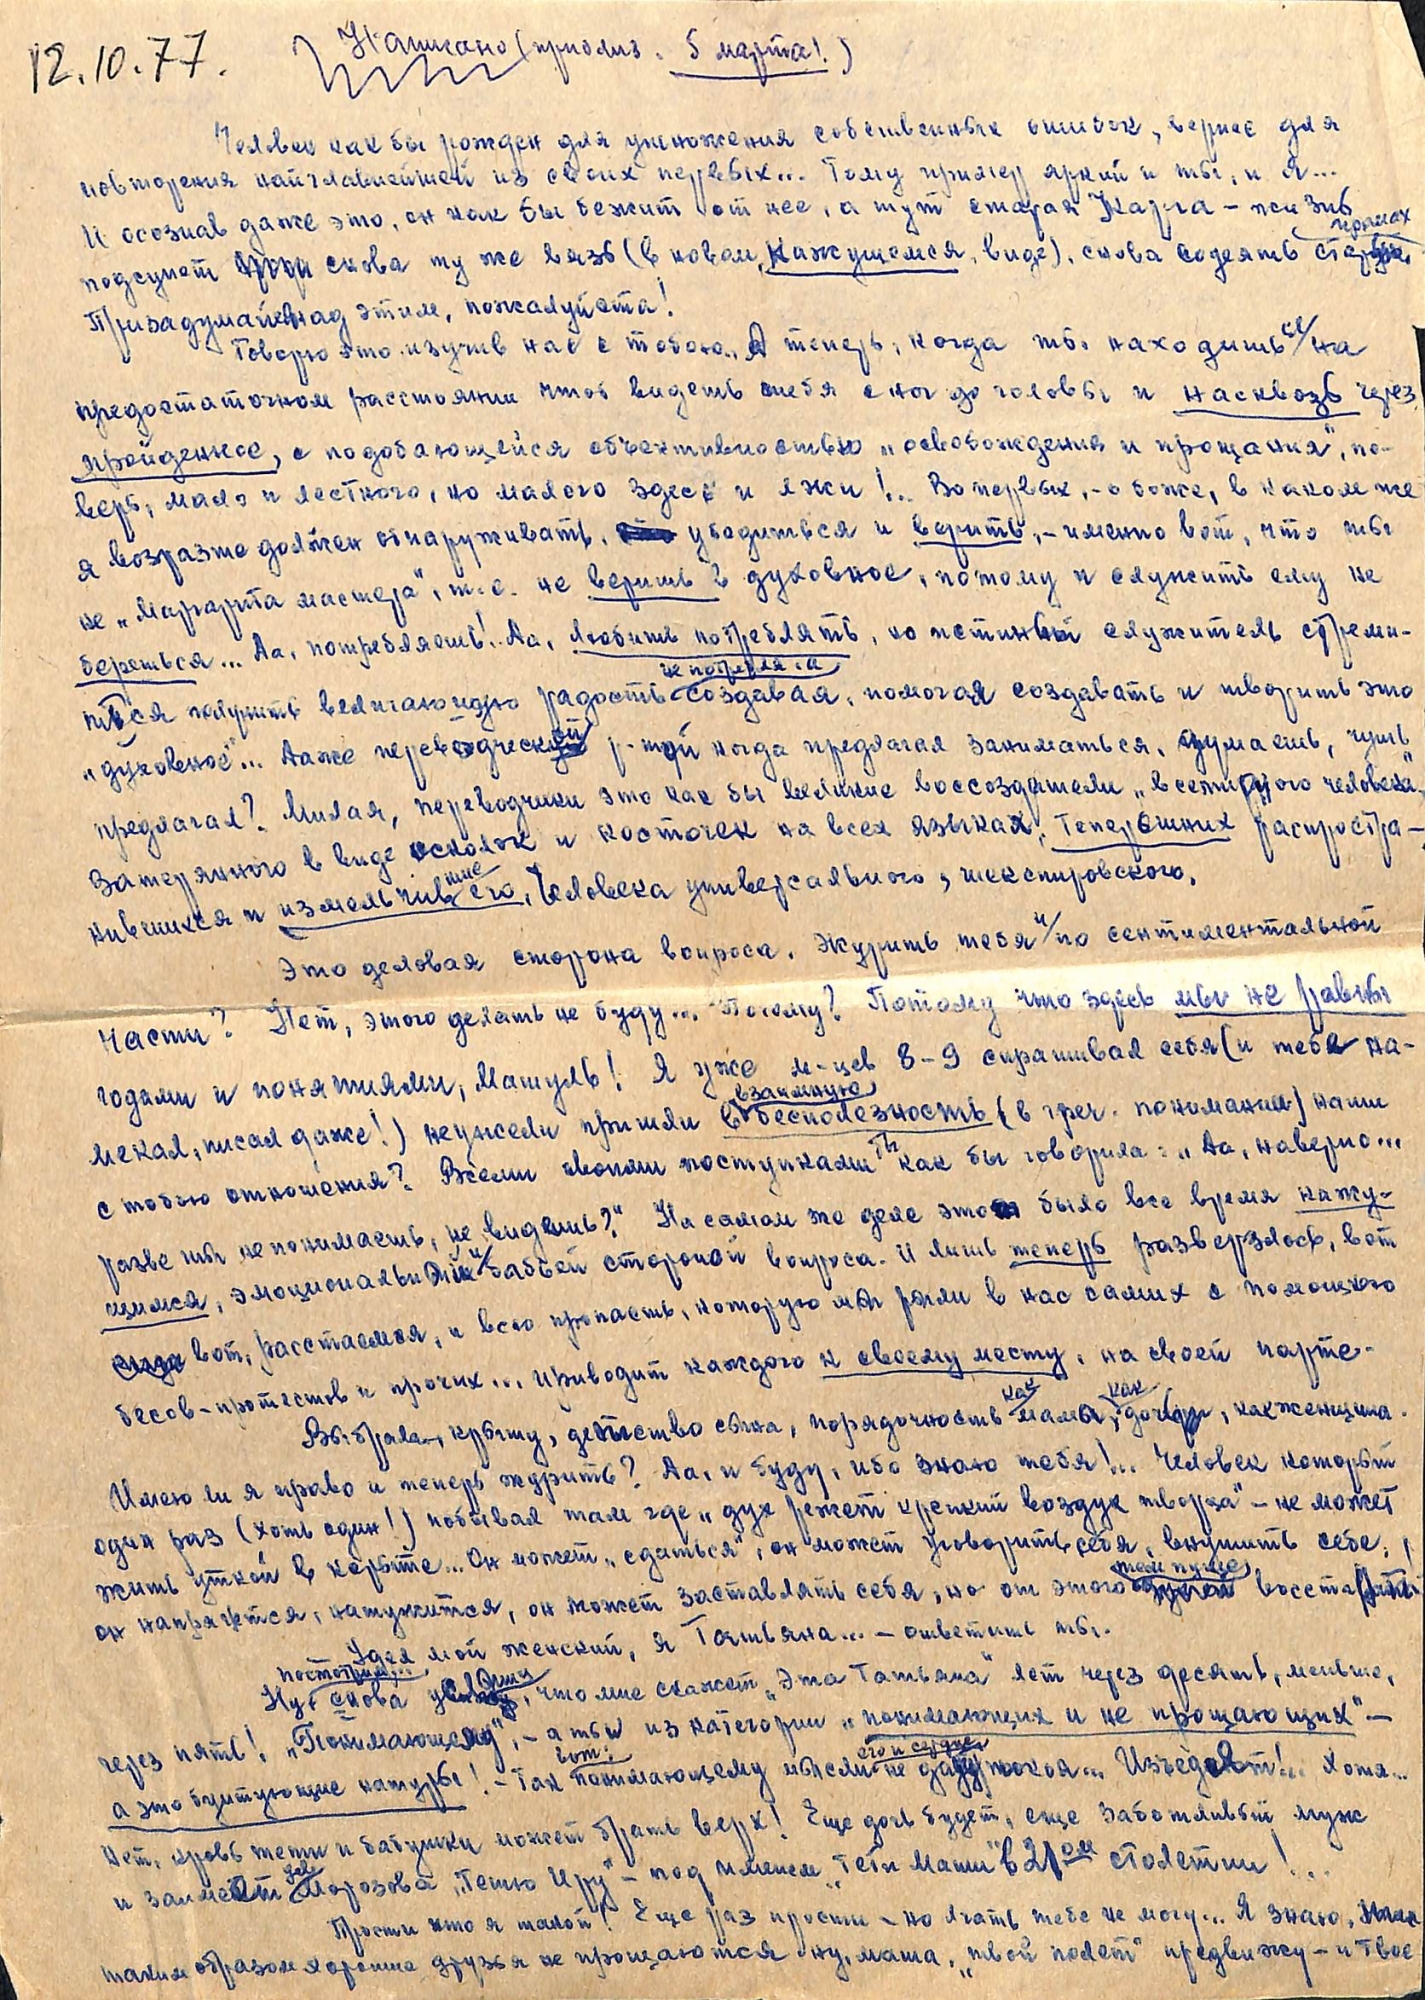 12.10.77.
Написано (приблиз. 5 марта!)
Человек как бы рожден для умножения собственных ошибок, вернее для
повторения наиглавнейшей из своих первых... Тому пример яркий и ты, и я...
И осознав даже это, он как бы бежит от нее, а тут старая Карга – жизнь
подсунет снова ту же вязь (в новом, кажущемся, виде). снова содеять
Призадумайся над этим, пожалуйста!
Говорю это изучив нас с тобою. А теперь, когда ты находишься на
предостаточном расстоянии чтоб видеть тебя с ног до головы и насквозь через
пройденное, с подобающейся объективностью „освобождения и прощания", по-
верь, мало и лестного, но малого здесь и лжи!.. Во первых, – о боже, в каком же
я возрасте должен обнаруживать, убедиться и верить, – именно вот, что ты
не „Маргарита мастера", т.е. не веришь в духовное, потому и служить ему не
берешься... Да, потребляешь! Да, любишь потреблять, но истинный служитель стреми-
тся получить величающую радость не потребляя, а создавая, помогая создавать и творить это
„духовное"... Даже переводческой р-той когда предлагал заниматься, думаешь, чушь
предлагал? Милая, переводчики это как бы великие воссоздатели „всемирного человека",
затерянного в виде осколок и косточек на всех языках, Теперешних распростра-
нившихся и измельчивших его, Человека универсального, шекспировского.
Это деловая сторона вопроса. Журить тебя и по сентиментальной
части? Нет, этого делать не буду... Почему? Потому что здесь мы не равны
годами и понятиями, Машуль! Я уже м-цев 8–9 спрашивал себя (и тебе на-
мекал, писал даже!) неужели пришли в взаимную бесполезность (в греч. понимании) наши
с тобою отношения? Всеми своими поступками ты как бы говорила: „Да, наверно...
разве ты не понимаешь, не видишь?" На самом же деле это было все время кажу-
щимся, эмоциональной и бабьей стороной вопроса. И лишь теперь разверзлось, вот
вот, расстаемся, и всю пропасть, которую мы рыли в нас самих с помощью
бесов-протестов и прочих... приводит каждого к своему месту, на своей парте.
Выбрала, крышу, детство сына, порядочность как мамы, как дочери, как женщина.
Имею ли я право и теперь журить? Да, и буду, ибо знаю тебя!.. Человек который
один раз (хоть один!) побывал там где „дух режет крепкий воздух творца" – не может
жить уткой в корыте... Он может „сдаться", он может уговорить себя, внушить себе,
он напряжется, натужится, он может заставлять себя, но от этого тем пуще
Удел мой женский, я Татьяна... – ответишь ты.
Ну, посмотрим... снова что мне скажет „Эта Татьяна" лет через десять, меньше,
через пять! „Понимающему", – а ты из категории „понимающих и не прощающих" –
а это бунтующие натуры! – Так вот: понимающему мысли его и сердце не дадут покоя... Изъедят!.. Хотя...
нет, кровь тети и бабушки может брать верх! Еще дочь будет, еще заботливый муж
и заимеет Морозова „Тетю Иру" – под именем „Тети Маши" в 21ом столетии!..
Прости что я такой! Еще раз прости – но лгать тебе не могу... Я знаю,
таким образом хорошие друзья не прощаются ну, маша, „твой полет" предвижу – и твое